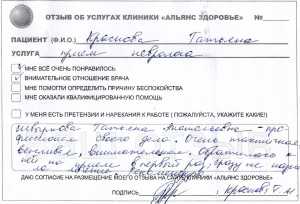 ОТЗЫВ ОБ УСЛУГАХ КЛИНИКИ «АЛЬЯНС ЗДОРОВЬЕ» №
ПАЦИЕНТ (Ф.И.О.) Краснова Татьяна
УСЛУГА прием невролога
МНЕ ВСЁ ОЧЕНЬ ПОНРАВИЛОСЬ
ВНИМАТЕЛЬНОЕ ОТНОШЕНИЕ ВРАЧА
МНЕ ПОМОГЛИ ОПРЕДЕЛИТЬ ПРИЧИНУ БЕСПОКОЙСТВА
МНЕ ОКАЗАЛИ КВАЛИФИЦИРОВАННУЮ ПОМОЩЬ
У МЕНЯ ЕСТЬ ПРЕТЕНЗИИ И НАРЕКАНИЯ К РАБОТЕ (ПОЖАЛУЙСТА, УКАЖИТЕ КАКИЕ)
Татьяна про-
фессионал своего дела. Очень тактичная
вежливая, внимательная.
ней на прием в первый раз, сразу же
ДАЮ СОГЛАСИЕ НА РАЗМЕЩЕНИЕ МОЕГО ОТЗЫВА НА САЙТЕ КЛИНИКИ «АЛЬЯНС ЗДОРОВЬЕ»
ПОДПИСЬ